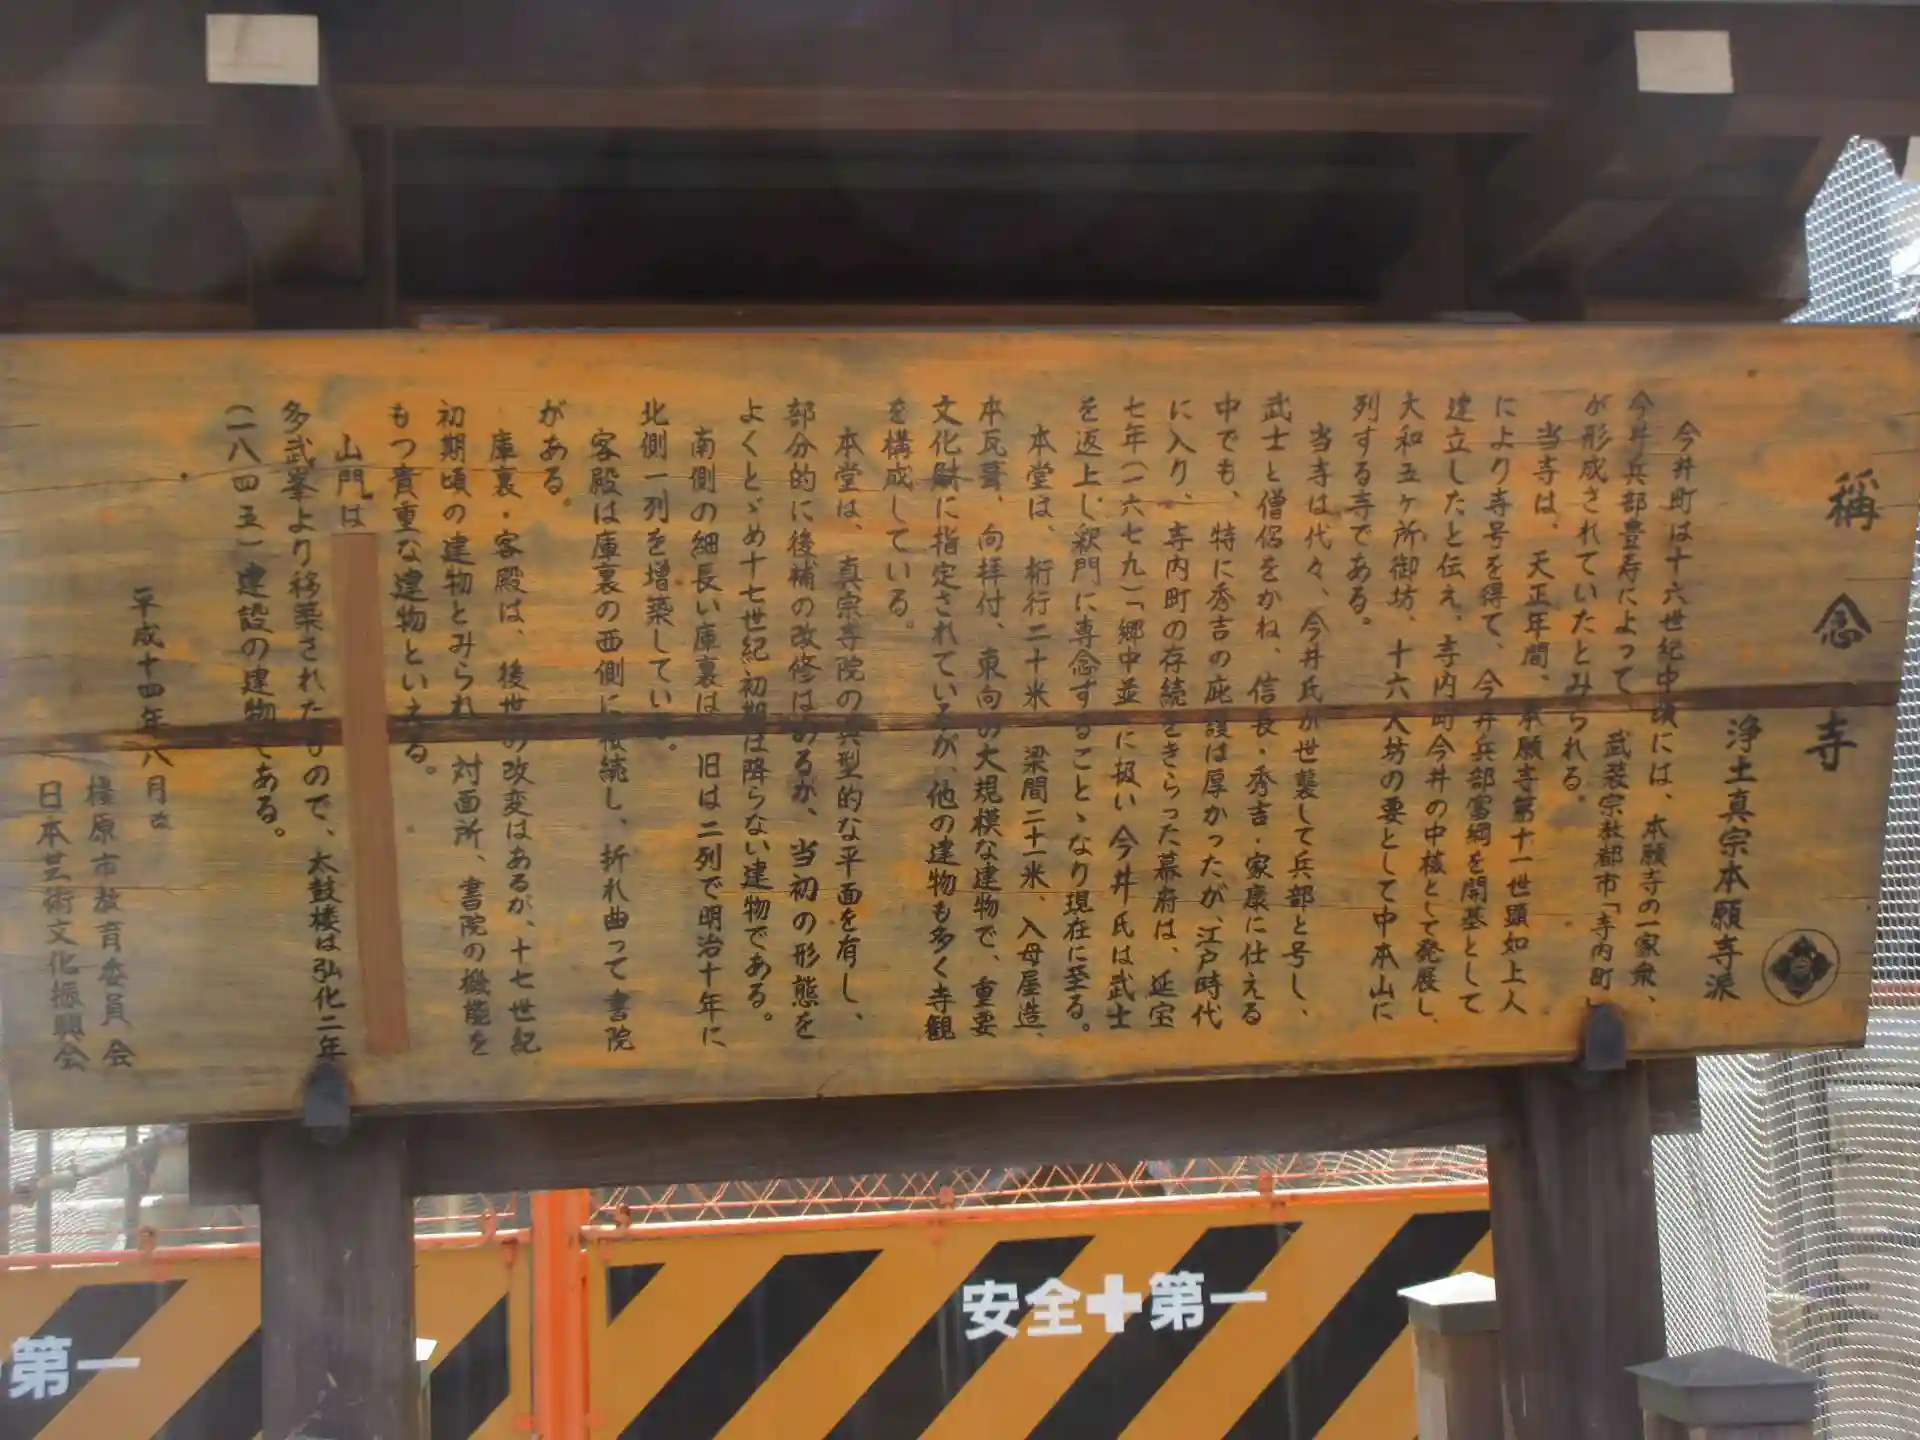 稱念寺
浄土真宗本願寺派
今井町は十六世紀中頃には、本願寺の一家衆、
今井兵部豊寿によって、武装宗教都市「寺内町」
が形成されていたとみられる。
当寺は、天正年間、本願寺第十一世顕如上人
により寺号を得て、今井兵部富綱を開基として
建立したと伝え、寺内町今井の中核として発展し、
大和五ヶ所御坊、十六大坊の要として中本山に
列する寺である。
当寺は代々、今井氏が世襲して兵部と号し、
武士と僧侶をかね、信長・秀吉・家康に仕える
中でも、特に秀吉の庇護は厚かったが、江戸時代
に入り、寺内町の存続をきらった幕府は、延宝
七年(一六七九)「郷中並」に扱い今井氏は武士
を返上し釈門に専念することゝなり現在に至る。
本堂は、桁行二十米、梁間二十一米、入母屋造、
本瓦葺、向拝付、東向の大規模な建物で、重要
文化財に指定されているが、他の建物も多く寺観
を構成している。
本堂は、真宗寺院の典型的な平面を有し、
部分的に後補の改修はあるが、当初の形態を
よくとゞめ十七世紀初期は降らない建物である。
南側の細長い庫裏は、旧は二列で明治十年に
北側一列を増築している。
客殿は庫裏の西側に接続し、折れ曲って書院
がある。
庫裏・客殿は、後世の改変はあるが、十七世紀
初期頃の建物とみられ、対面所、書院の機能を
もつ貴重な建物といえる。
山門は
多武峯より移築されたもので、太鼓楼は弘化二年
(一八四五)建設の建物である。
平成十四年八月吉
橿原市教育委員会
日本芸術文化振興会
安全✚第一
第一